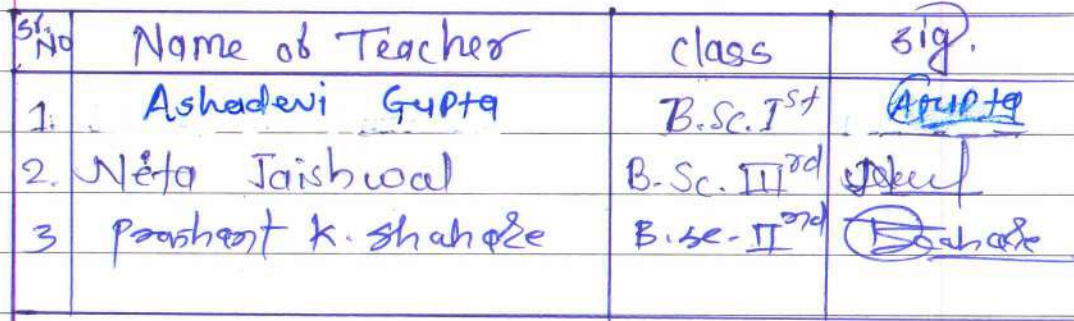 Sr. No Name of Teacher class sig.
1. Ashadevi Gupta B.Sc. Ist AGupta
2. Neta Jaishwal B.Sc. IIIrd
3 Prashant K. Shahare B.sc. IInd